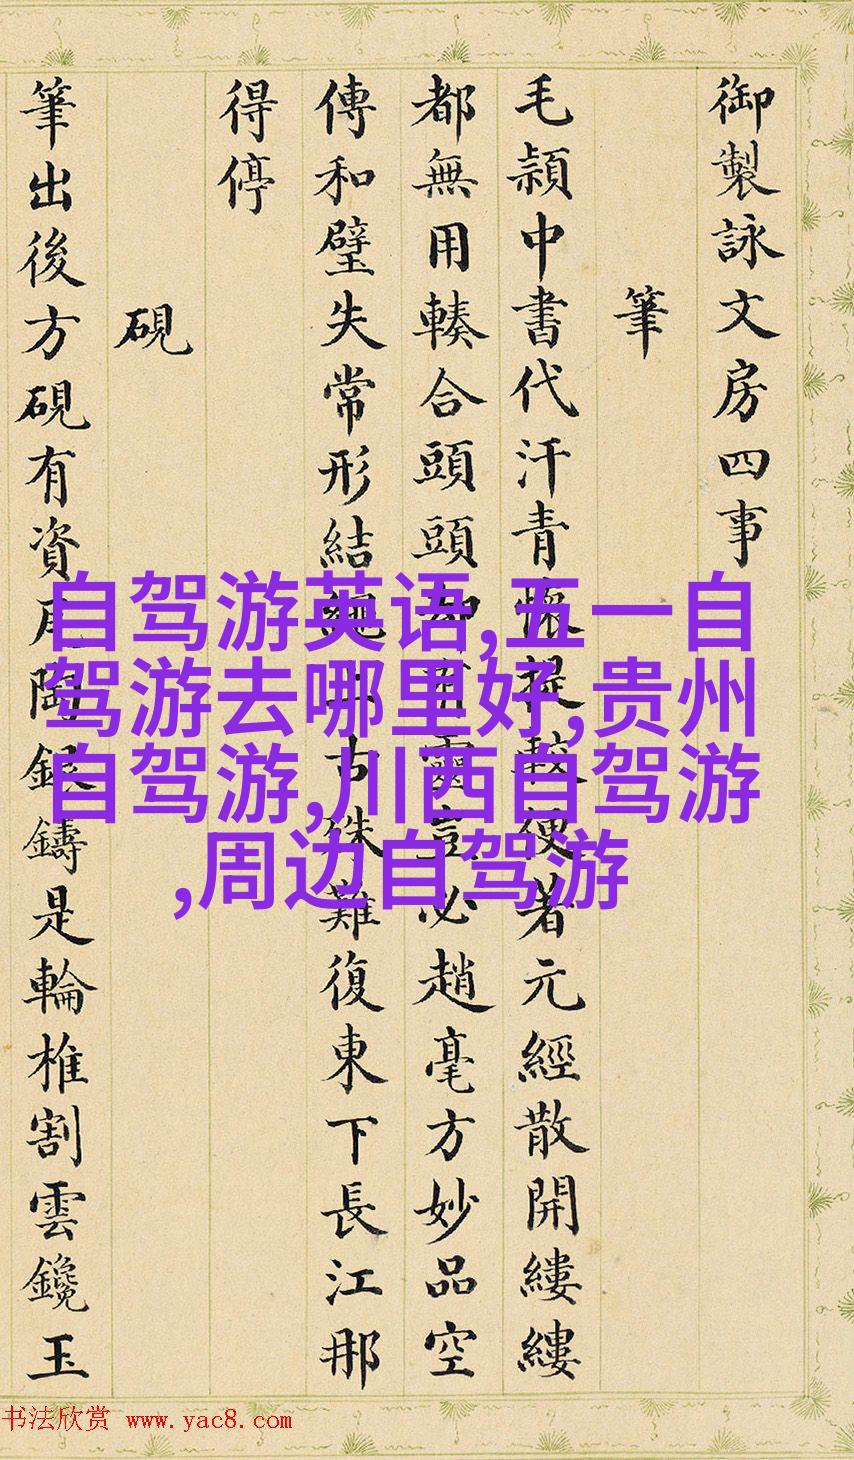 御製詠文房四事
筆
毛頴中書代汗青提較便著元經散開縷縷
都無用輳合頭頭靈豈必趙毫方妙品空
傳和璧失常形結繩古殊難復東下長江那
得停
硯
筆出後方硯有資陶銀鑄是輪椎割雲鑱玉
自驾游英语,五一自
驾游去哪里好,贵州
自驾游,川西自驾游
,周边自驾游
书法欣赏 www.yac8.com